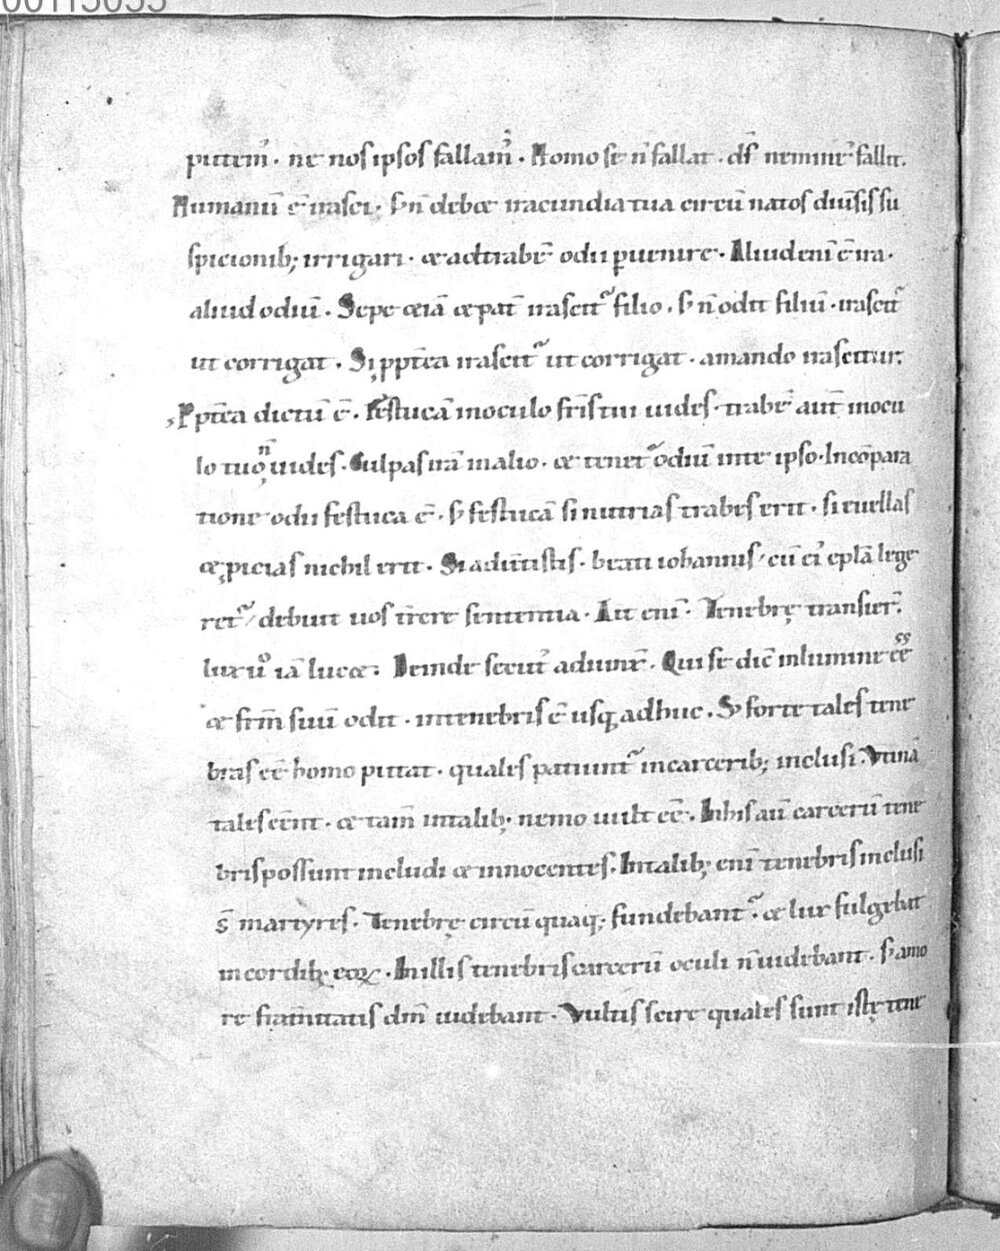 00115055
putem᷒ · ne nos ipsos fallam᷒ · Homo se n̄ fallat · ds̄ neminē fallit.
Humanū ē irasci · s; n̄ debet iracundia tua circū natos diuīsis su
spicionib; irrigari · et ad trabē odii ꝑuenire · Aliud enī ē ira ·
aliud odiū · Sepe etiā et pat̄ irascit᷑ filio · s; n̄ odit filiū · irascit᷑
ut corrigat · Si ꝓpt̄ea irascit᷑ ut corrigat · amando irascitur;
Ꝓpt̄ea dictū ē · Festucā in oculo fr̄is tui uides · trabē aut̄ in ocu
lo tuo n̄ uides · Culpas irā in alio · et tenet᷑ odiū in te ipso · In cōpara
tione odii festuca ē · s; festucā si nutrias trabes erit · si euellas
et ꝓicias nichil erit · Si aduīstis · beati iohannis · cū ei᷒ epl̄a lege
ret᷑ / debuit uos t̄rere sententia · Ait enī · Tenebrę transier̄.
lux ū iā lucet · Deinde secut᷒ adiunx̄ · Qui se dic̄ in lumine ēē
et fr̄m suū odit · in tenebris ē usq; adhuc · S; forte tales tene
bras ēē homo putat · quales patiunt᷑ in carcerib; inclusi · Vtinā
tales eēnt · et tam̄ in talib; nemo uult ēē · In his aū carcerū tene
bris possunt includi et innocentes · In talib; enī tenebris inclusi
s̄ martyres · Tenebrę circū quaq; fundebant᷑ · et lux fulgebat
in cordib; eoꝝ · In illis tenebris carcerū oculi n̄ uidebant · s; amo
re frat̄nitatis dm̄ uidebant · Vultis scire quales sunt istę tene